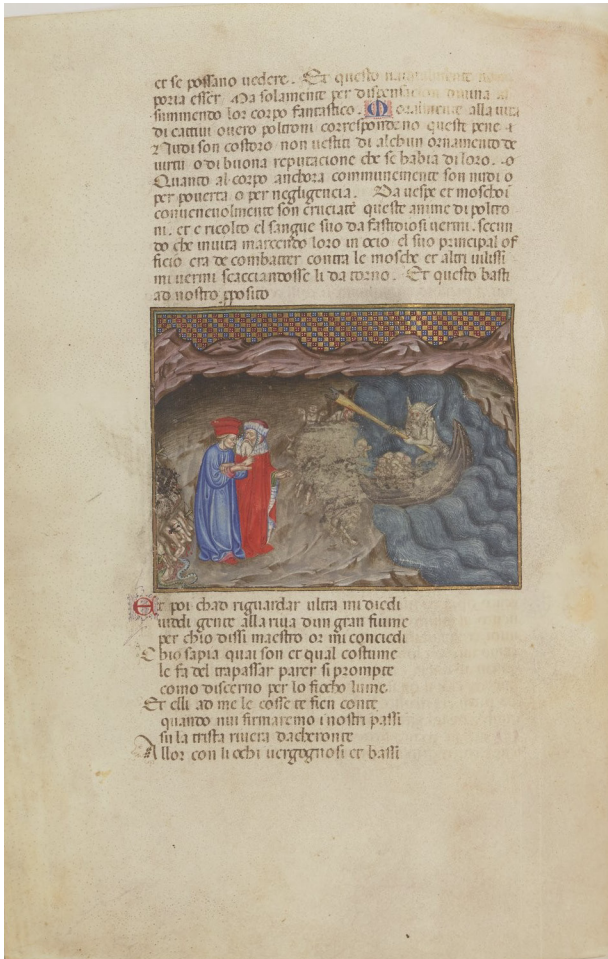 et se possano vedere. Et questo naturalmente non
poria esser Ma solamente per dispensacion divina as
summendo lor corpo fantastico. Moralmente alla vita
di cattivi overo poltroni correspondeno queste pene i
nudi son costoro non vestiti di alchun ornamento de
virtu o di buona reputacione che se habia di loro. o
Quanto al corpo anchora communemente son nudi o
per poverta o per negligencia. Da vespe et moschoi
convenevolmente son cruciate queste anime di poltro
ni. et e ricolto el sangue suo da fastidiosi vermi. secun
do che in vita marcendo loro in ocio el suo principal of
ficio era de combatter contra le mosche et altri vilissi
mi vermi scacciandosse li da torno. Et questo basti
ad nostro pposito
Et poi chad riguardar ultra mi diedi
viddi gente alla riva dun gran fiume
per chio dissi maestro or mi conciedi
Chio sapia quai son et qual costume
le fa del trapassar parer si prompte
como discerno per lo fiocho lume.
Et elli ad me le cosse te fien conte
quando nui firmaremo i nostri passi
su la trista rivera dacheronte
Allor con li ochi vergognosi et bassi